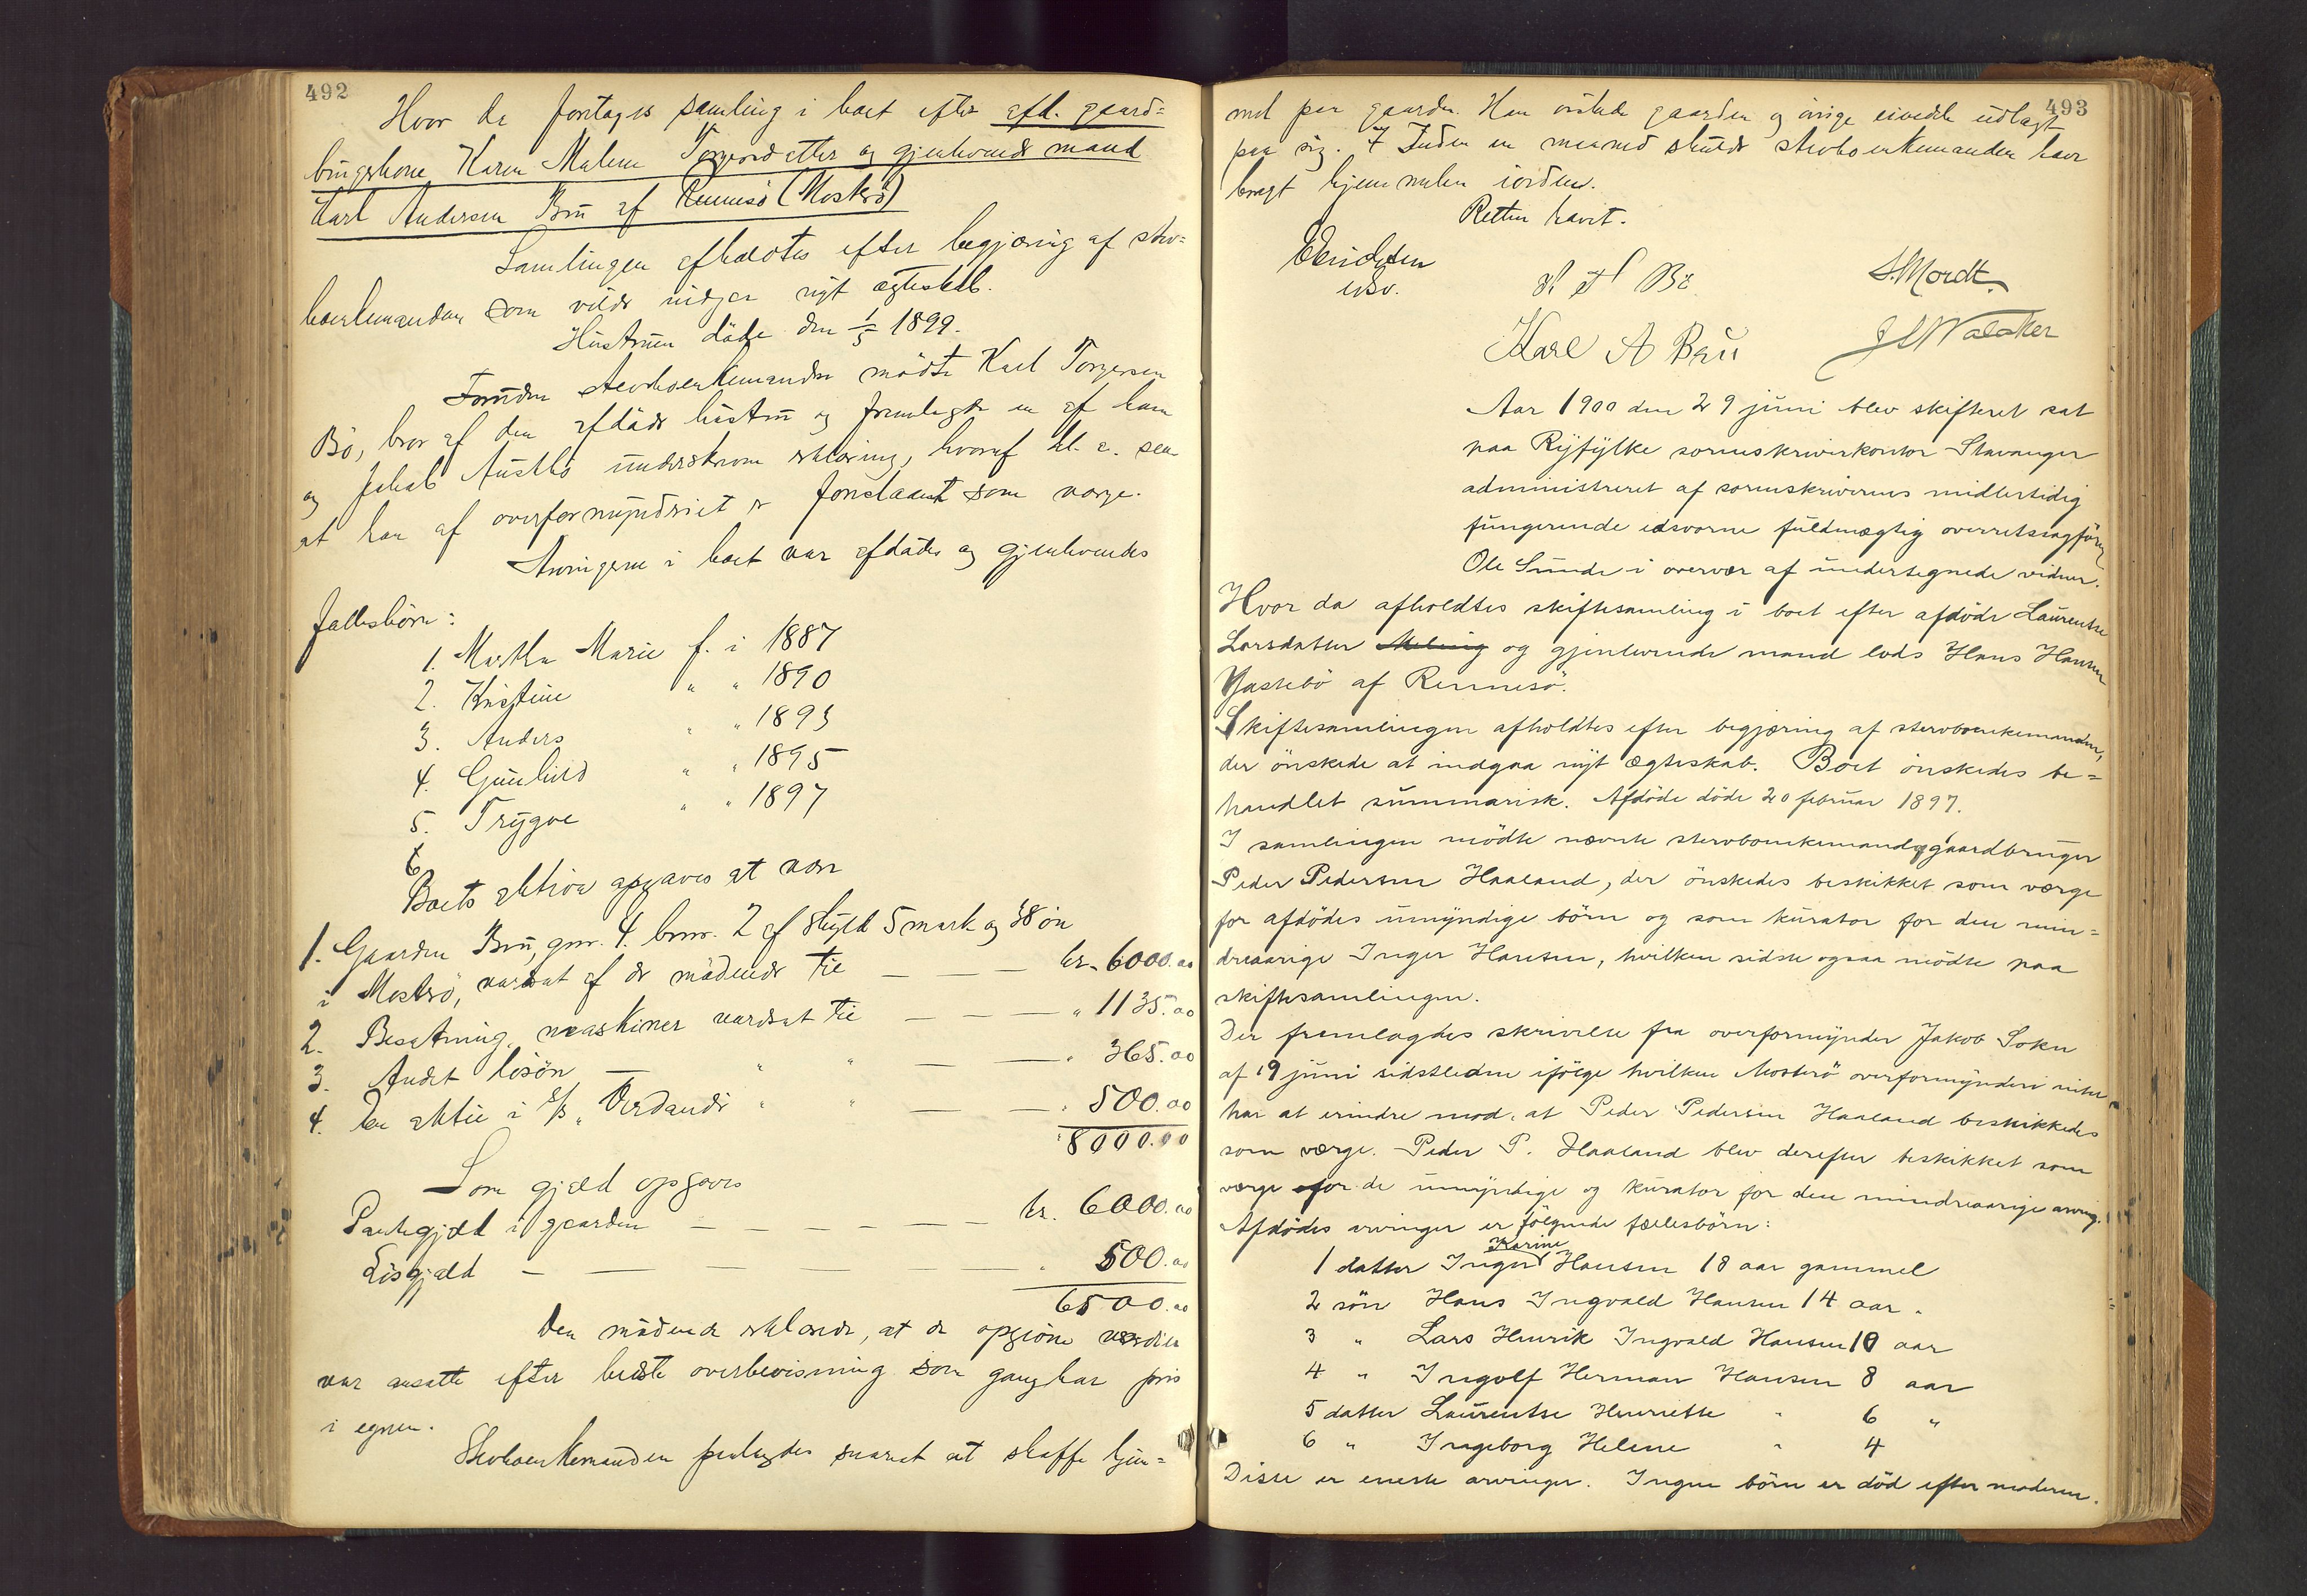 492
Hvor da foretages samling i boet efter afd. gaard=
brugerkone Karen Malene Torgersdatter og gjenlevende mand
Karl Andersen Bru af Rennesö (Mosterö)
Samlingen afholdtes efter begjæring af sterv=
boenkemanden som vilde indgaa nyt ægteskab.
Hustruen döde den 1/5 1899.
Foruden stervboenkemanden mödte Karl Torgersen
Bö, bror af den afdöde hustru og fremlagde en af ham
og Jakob Austbö underskreven erklæring, hvoraf bl. a. sees
at han af overformynderiet er foreslaaet som verge.
Arvingerne i boet var afdödes og gjenlevendes
fællesbörn:
1. Martha Marie f. i 1887
2. Kristine " " 1890
3. Anders " " 1893
4. Gunhild " " 1895
5. Trygve " " 1897
6
Boets aktiva opgaves at være
1. Gaarden Bru, gnr. 4. brnr. 2 af skyld 5 mark og 38 öre
i Mosterö, værdsat af de mödende til — — — kr. 6000.00
2. Besætning, maskiner værdsat til — — — " 1135.00
3. Andet lösöre — " " — — " 365.00
4. En aktie i S/S "Verdandi " " — — " 500.00
" 8000.00
Som gjæld opgaves
Pantegjæld i gaarden — — — — — — kr. 6000.00
Lösgjæld — — — — — — " 500.00
6500.00
De mödende erklærede, at de opgivne værdier
var ansatte efter bedste overbevisning som gangbar pris
i egnen.
Stervboenkemanden paalagdes snarest at skaffe hjem=
493
mel paa gaarden. Han önskede gaarden og övrige eiendele udlagt
paa sig. Inden en maaned skulde stervboenkemanden have
bragt hjemmelen iorden.
Retten hævet.
Erichsen
edsv.
K T Bö
S. Mordt.
Karl A Bru
J S Walaker
Aar 1900 den 29 juni blev skifteret sat
paa Ryfylke sorenskriverkontor Stavanger
administreret af sorenskriverens midlertidig
fungerende edsvorne fuldmægtig overretssagförer
Ole Sunde i overvær af undertegnede vidner.
Hvor da afholdtes skiftesamling i boet efter afdöde Laurentse
Larsdatter og gjenlevende mand lods Hans Hansen
Vastebö af Rennesö.
Skiftesamlingen afholdtes efter begjæring af stervboenkemanden,
der önskede at indgaa nyt ægteskab. Boet önskedes be=
handlet summarisk. Afdöde döde 20 februar 1897.
I samlingen mödte nævnte stervboenkemand og gaardbruger
Peder Pedersen Haaland, der önskedes beskikket som værge
for afdödes umyndige börn og som kurator for den min=
dreaarige Inger Hansen, hvilken sidste ogsaa mödte paa
skiftesamlingen.
Der fremlagdes skrivelse fra overformynder Jakob Sokn
af 19 juni sidstleden ifölge hvilken Mosterö overformynderi intet
har at erindre mod, at Peder Pedersen Haaland beskikkedes
som værge. Peder P. Haaland blev derefter beskikket som
værge for de umyndige og kurator for den mindreaarige arving.
Afdödes arvinger er fölgende fællesbörn:
1 datter Inger Karine Hansen 18 aar gammel
2 sön Hans Ingvald Hansen 14 aar "
3 " Lars Henrik Ingvald Hansen 10 aar
4 " Ingolf Herman Hansen 8 aar
5 datter Laurentse Henriette " 6 "
6 " Ingeborg Helene " 4
Disse er eneste arvinger. Ingen börn er död efter moderen.